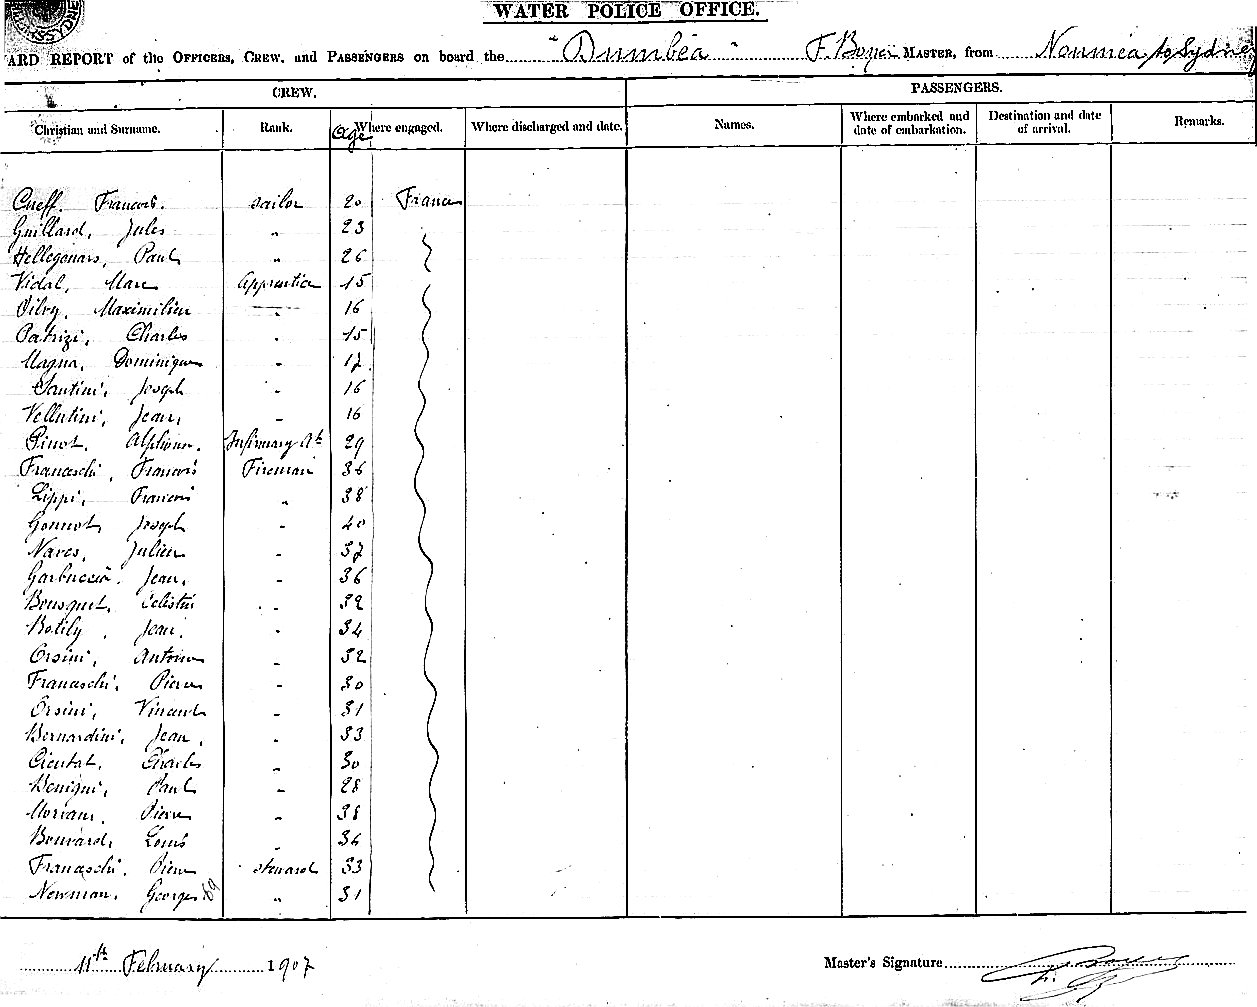 WATER POLICE OFFICE.
ARD REPORT of the OFFICERS, CREW, and PASSENGERS on board the "Dumbéa" F. Boyer MASTER, from Nouméa to Sydney
CREW. PASSENGERS.
Christian and Surname. Rank. Age Where engaged. Where discharged and date. Names. Where embarked and date of embarkation. Destination and date of arrival. Remarks.
Cueff. Francois. sailor 20 France
Guillard, Jules " 23
Hellegouars, Paul " 26
Vidal, Marc Apprentice 15
Maximilien " 16
Patrizi, Charles " 15
Magna, Dominique " 17
Santini, Joseph " 16
Vellutini, Jean, " 16
Pinot, Alphonse. Infirmary At 29
Franceschi, Francois Fireman 36
Lippi, Francois " 38
Gonnot, Joseph " 40
Naves, Julien " 37
Garbuccia. Jean, " 36
Bousquet, Celestin " 32
Botily, Jean. " 34
Orsini, Antoine " 32
Franceschi, Pierre " 30
Orsini, Vincent " 31
Bernardini, Jean, " 33
Charles " 30
Benigni, Paul " 28
Moriani, Pierre " 38
Bouvard, Louis " 36
Franceschi, Pierre steward 33
Newman, Georges 69 " 31
11th February 1907 Master's Signature